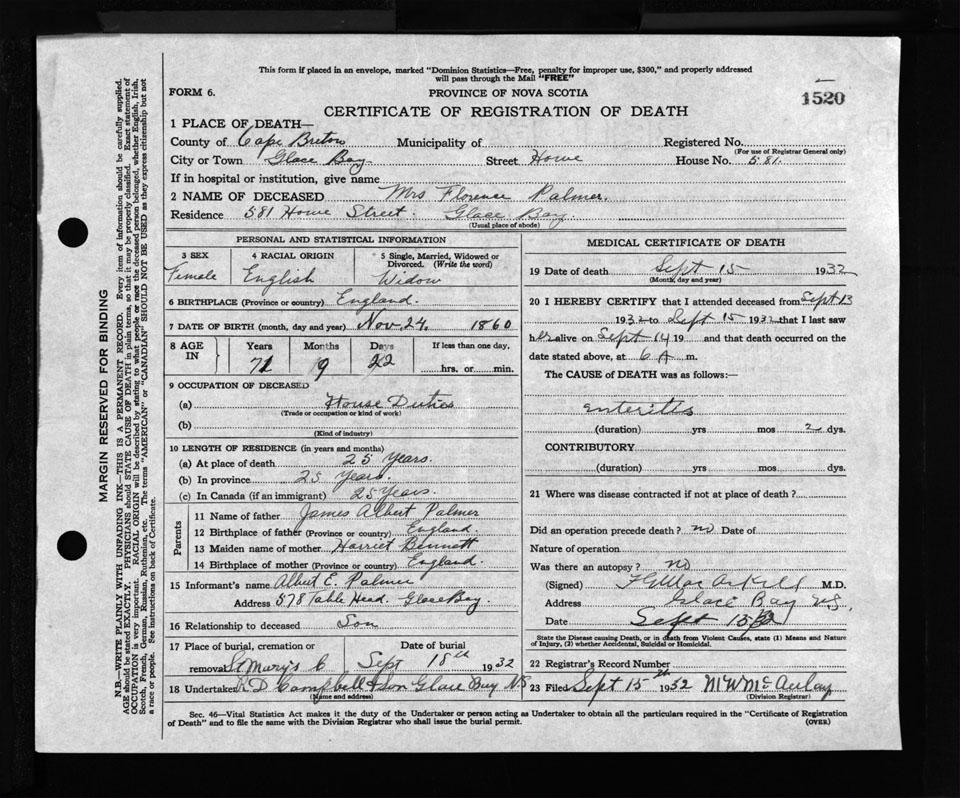 This form if placed in an envelope, marked "Dominion Statistics—Free, penalty for improper use, $300," and properly addressed
will pass through the Mail "FREE"
FORM 6.
PROVINCE OF NOVA SCOTIA
1520
CERTIFICATE OF REGISTRATION OF DEATH
1 PLACE OF DEATH—
County of Cape Breton Municipality of Registered No.
(For use of Registrar General only)
City or Town Glace Bay Street Howe House No. 581
If in hospital or institution, give name
2 NAME OF DECEASED Mrs Florence Palmer
Residence 581 Howe Street. Glace Bay.
(Usual place of abode)
PERSONAL AND STATISTICAL INFORMATION
3 SEX 4 RACIAL ORIGIN 5 Single, Married, Widowed or
Divorced. (Write the word)
Female English Widow
6 BIRTHPLACE (Province or country) England.
7 DATE OF BIRTH (month, day and year) Nov. 24. 1860
8 AGE IN Years Months Days If less than one day,
71 9 22 hrs. or min.
9 OCCUPATION OF DECEASED
(a) House Duties
(Trade or occupation or kind of work)
(b)
(Kind of industry)
10 LENGTH OF RESIDENCE (in years and months)
(a) At place of death 25 Years.
(b) In province 25 Years.
(c) In Canada (if an immigrant) 25 Years.
Parents
11 Name of father James Albert Palmer
12 Birthplace of father (Province or country) England.
13 Maiden name of mother Harriet Bennett
14 Birthplace of mother (Province or country) England.
15 Informant's name Albert E. Palmer
Address 578 Table Head. Glace Bay.
16 Relationship to deceased Son
17 Place of burial, cremation or Date of burial
removal St Mary's C Sept 18th 1932
18 Undertaker R D Campbell & Son Glace Bay NS
(Name and address)
MEDICAL CERTIFICATE OF DEATH
19 Date of death Sept 15 1932
(Month, day and year)
20 I HEREBY CERTIFY that I attended deceased from Sept 13
1932 to Sept 15 1932 that I last saw
her alive on Sept 14 19 and that death occurred on the
date stated above, at 6 A m.
The CAUSE OF DEATH was as follows:—
enteritis
(duration) yrs mos 2 dys.
CONTRIBUTORY
(duration) yrs mos dys.
21 Where was disease contracted if not at place of death?
Did an operation precede death? no Date of
Nature of operation
Was there an autopsy? no
(Signed) M.D.
Address Glace Bay NS.
Date Sept 15
State the Disease causing Death, or in death from Violent Causes, state (1) Means and Nature
of Injury, (2) whether Accidental, Suicidal or Homicidal.
22 Registrar's Record Number
23 Files Sept 15th 1932 M W McAulay
(Division Registrar)
Sec. 46—Vital Statistics Act makes it the duty of the Undertaker or person acting as Undertaker to obtain all the particulars required in the "Certificate of Registration
of Death" and to file the same with the Division Registrar who shall issue the burial permit. (OVER)
MARGIN RESERVED FOR BINDING
N.B.—WRITE PLAINLY WITH UNFADING INK—THIS IS A PERMANENT RECORD. Every item of information should be carefully supplied.
AGE should be stated EXACTLY. PHYSICIANS should STATE CAUSE OF DEATH in plain terms, so that it may be properly classified. Exact statement of
OCCUPATION is very important. RACIAL ORIGIN will be described by stating to what people or race the deceased person belonged, whether English, Irish,
Scotch, French, German, Russian, Ruthenian, etc. The terms "AMERICAN" or "CANADIAN" SHOULD NOT BE USED as they express citizenship but not
a race or people. See instructions on back of Certificate.